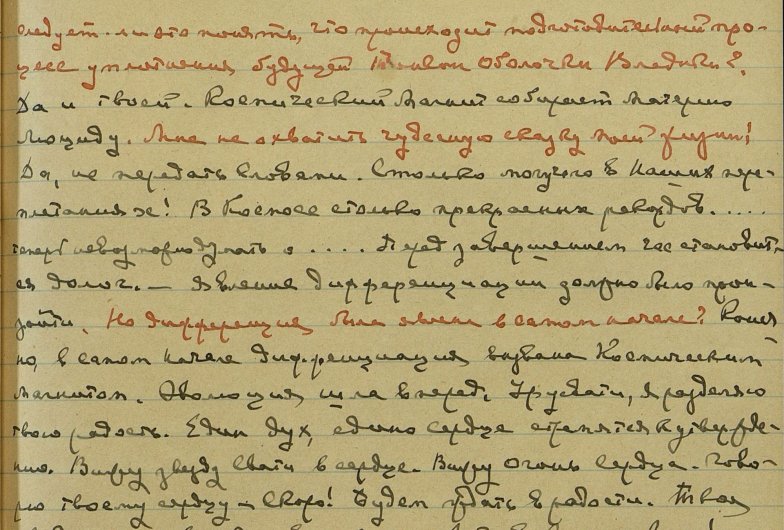 следует ли это понять, что происходит подготовительный про-
цесс уплотнения будущей Тонкой Оболочки Владыки?
Да и твоей. Космический Магнит собирает Материю
Люциду. Мне не охватить чудесную сказку моей жизни!
Да, не передать словами. Столько могучего в Наших пере-
плетаниях! В Космосе столько прекрасных рекордов.....
теперь невозможно думать о .... Перед завершением час становит-
ся долог. — Явление дифференциации должно было прои-
зойти. Но дифференция была явлена в самом начале? Конеч-
но, в самом начале дифференциация вызвана Космическим
Магнитом. Эволюция шла вперед. Урусвати, я разделяю
твою радость. Един дух, едино сердце стремятся к утвержде-
нию. Вижу звезду Свати в сердце. Вижу огонь сердца. Гово-
рю твоему сердцу — скоро! Будем ждать в радости. Твоя